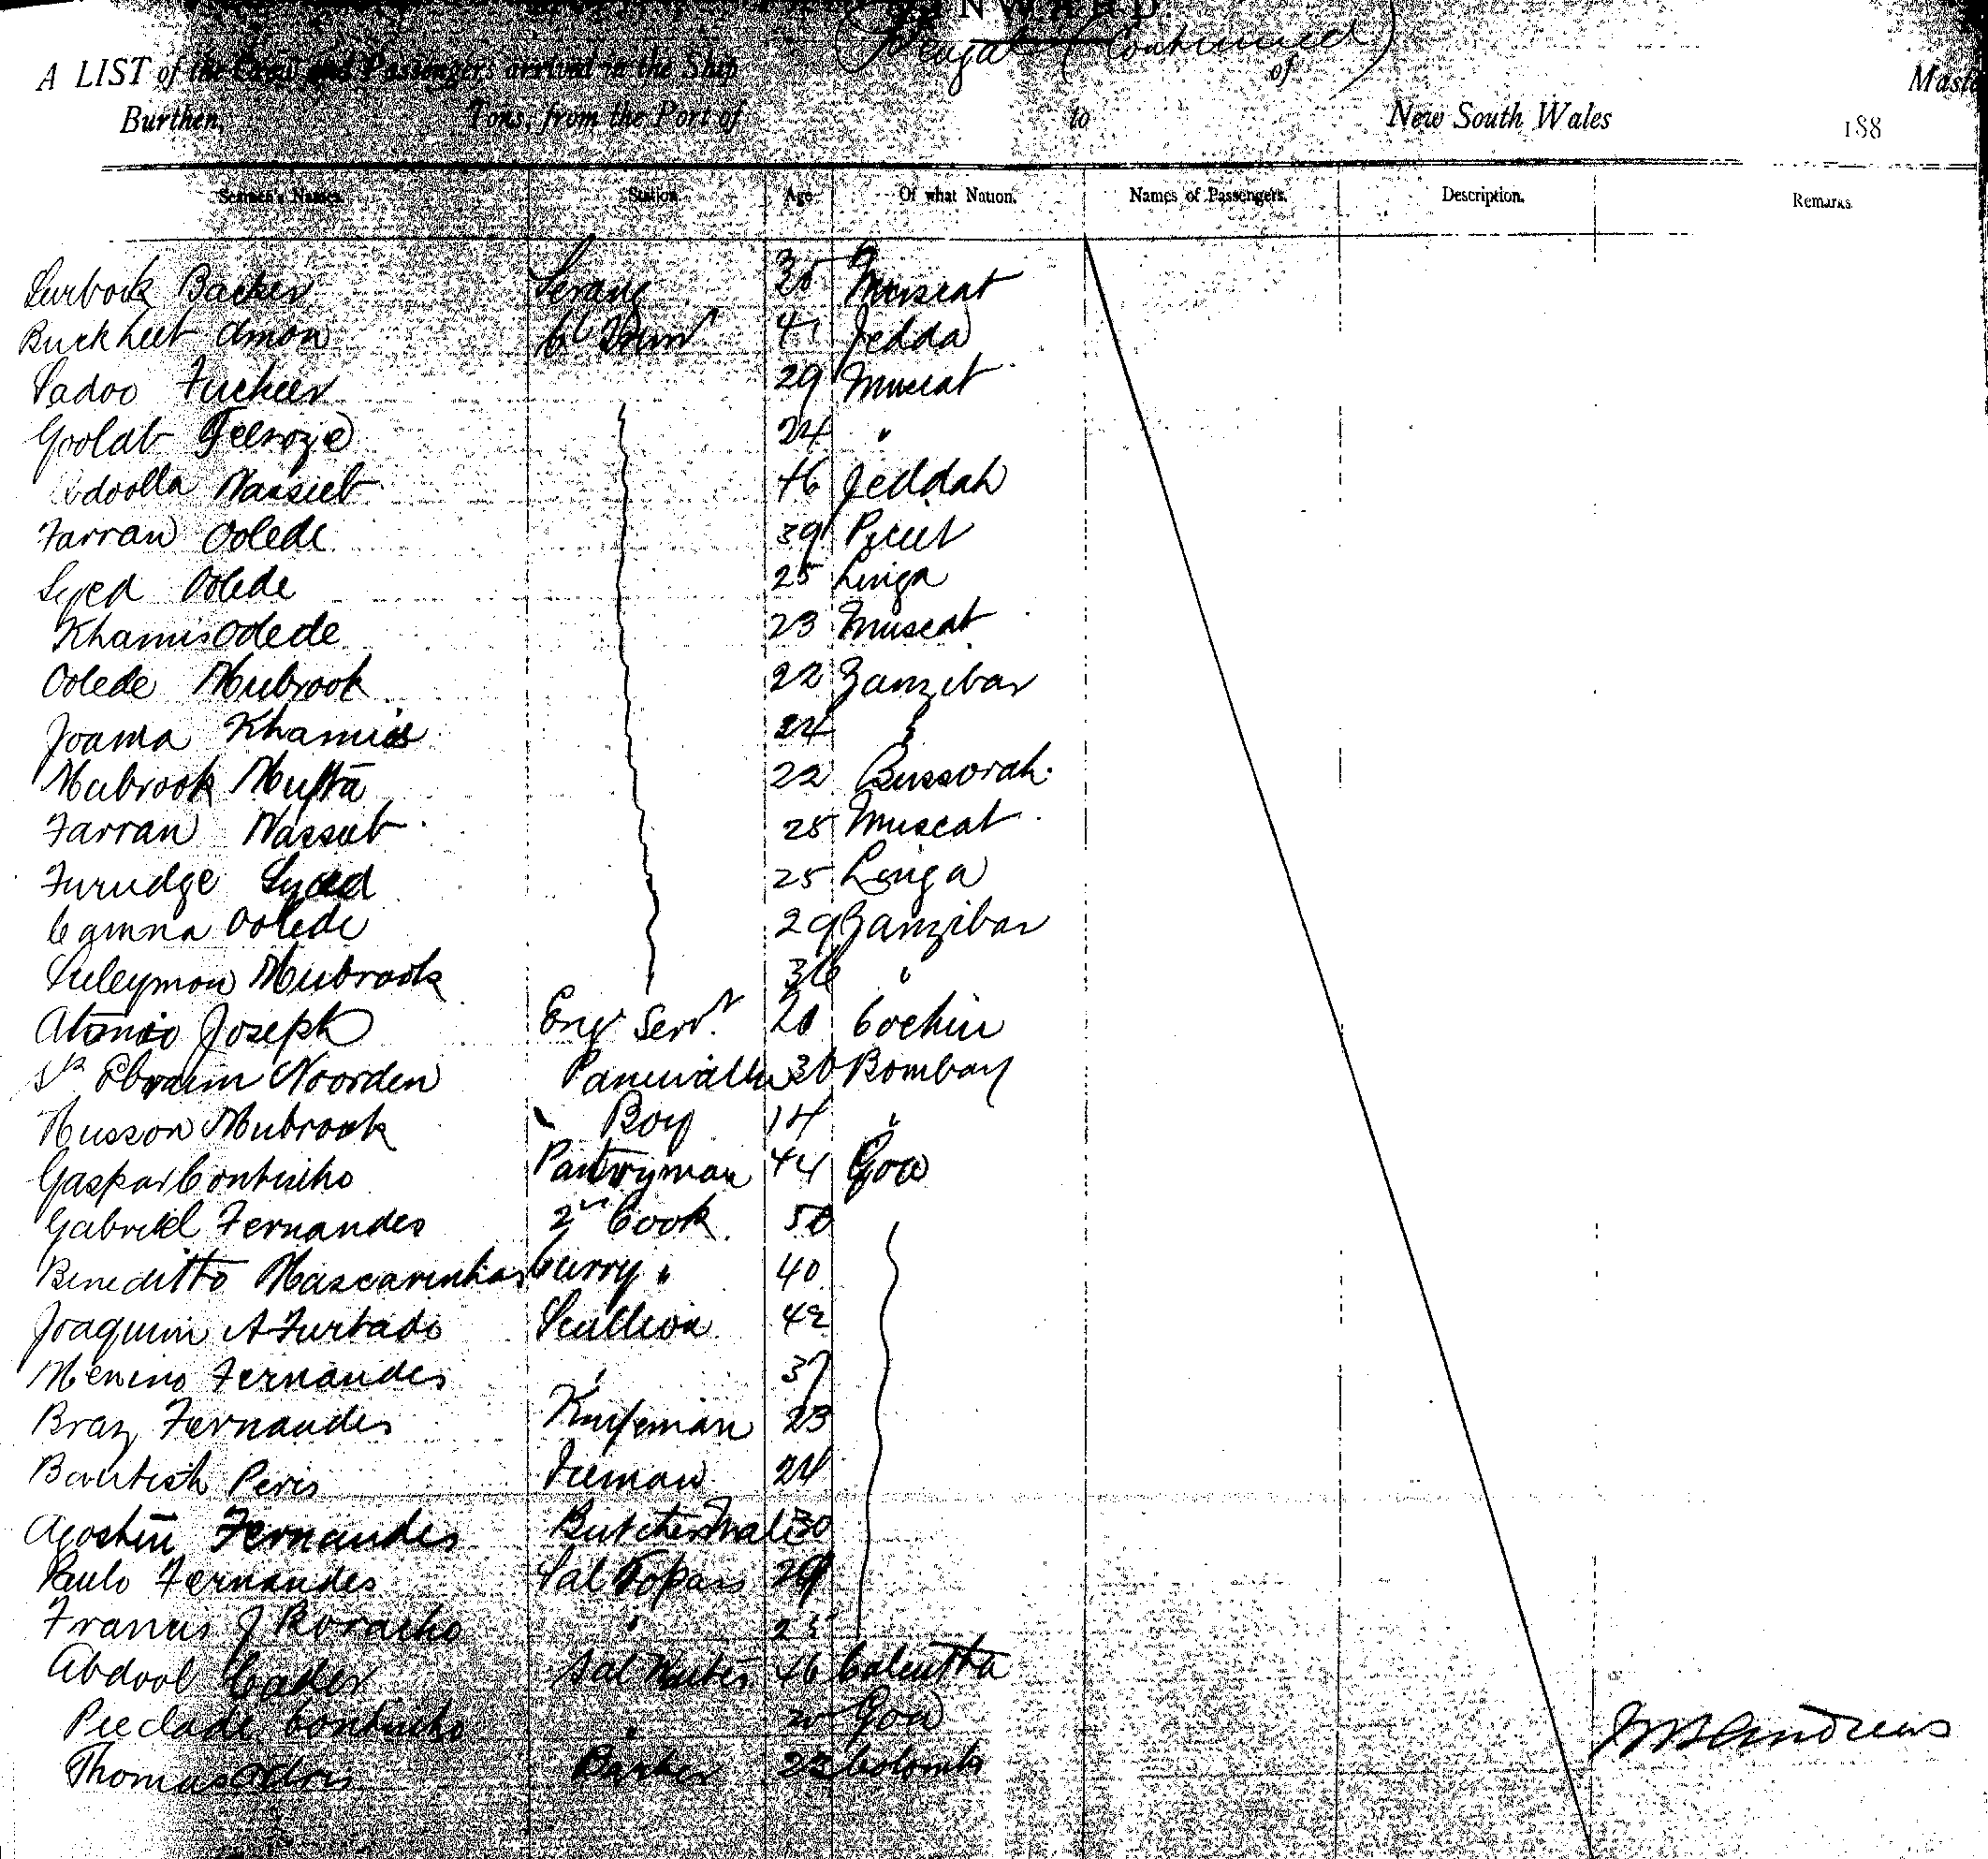 INWARD
Bengal (Continued)
A LIST of the Crew and Passengers arrived in the Ship of Master
Burthen, Tons, from the Port of to New South Wales 188
Seamen's Names. Station. Age. Of what Nation. Names of Passengers. Description. Remarks
Surbook Backer Serang 35 Muscat
Buckheet Amon 41 Jedda
Sadoo Fucheer 29 Muscat
Goolab Feeroze 24 "
Abdoolla Nasseeb 46 Jeddah
Farran Oolede 39
Syed Oolede 25 Linga
Khamis Odede 23 Muscat
Oolede Mubrook 22 Zanzibar
Joama Khamis 24 "
Mabrook Mufta 22 Bussorah.
Farran Nasseeb 25 Muscat
Furudge Syed 25 Linga
Camna Oolede 29 Zanzibar
Suleymon Mubrook 36 "
Atonio Joseph Eng Servt 20 Cochin
Sk Ebraim Noorden Paniwalla 36 Bombay
Husson Mubrook Boy 14 "
Gaspar Continho Pantryman 44 Goa
Gabriel Fernandes 2nd Cook 50
Beneditto Mascarinhas Curry " 40
Joaquim A Furtado Scullion 42
Menino Fernandes " 37
Braz Fernandes Knifeman 23
Bautish Peris 24
Agostin Fernandes Butchers Mate 30
Paulo Fernandes Sal Topass 29
Francis J " 25
Abdool Cader Sal 46 Calcutta
Piedade Continho " Goa
Thomas Barber 22 Colombo
Andrews